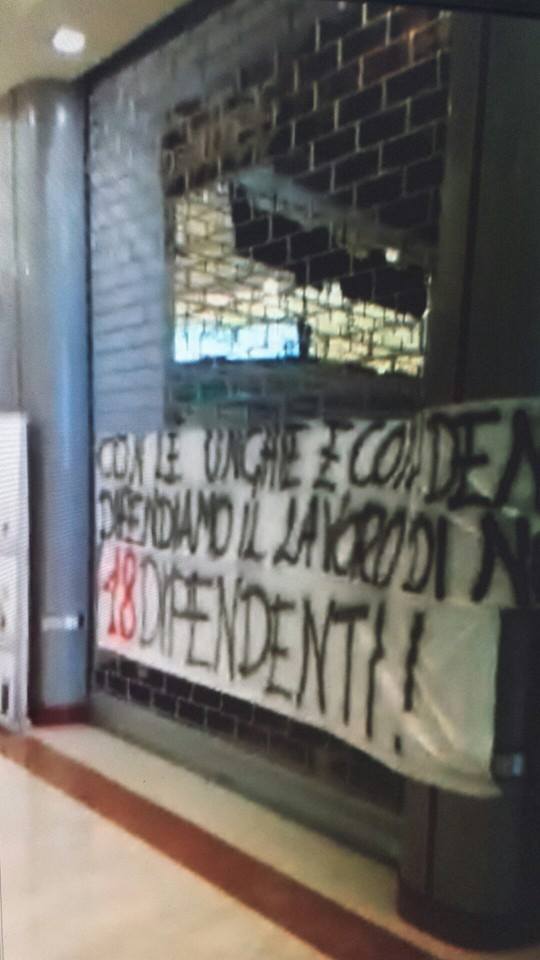 CON LE UNGHIE E CON DEN
DIFENDIAMO IL LAVORO DI N
18 DIPENDENTI!